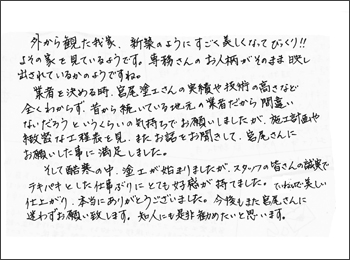 外から観た我家、新築のようにすごく美しくなってびっくり!!
よその家を見ているようです。専務さんのお人柄がそのまま映し
出されているかのようですね。
業者を決める時、宮尾塗工さんの実績や技術の高さなど
全くわからず、昔から続いている地元の業者だから間違い
ないだろうというくらいの気持ちでお願いしましたが、施工計画や
緻密な工程表を見、またお話をお聞きして、宮尾さんに
お願いした事に満足しました。
そして酷暑の中、塗工が始まりましたが、スタッフの皆さんの誠実で
テキパキとした仕事ぶりにとても好感が持てました。ていねいで美しい
仕上がり、本当にありがとうございました。今後もまた宮尾さんに
迷わずお願い致します。知人にも是非勧めたいと思います。